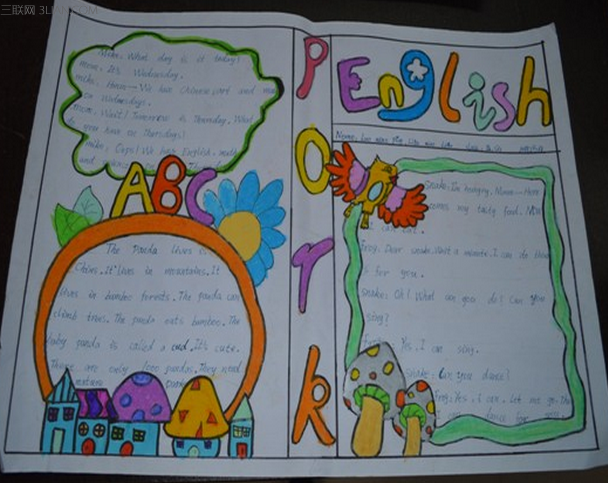 三联网 3LIAN.COM
Mike: What day is it today?
Mom: It's Wednesday.
Mike: Hmm— We has Chinese, art and
on Wednesdays.
Mom: Wait! Tomorrow is Thursday. What
do you have on Thursdays?
Mike: Oops! We have English, math
and
ABC
The Panda lives in
China. It lives in mountains. It
lives in bamboo forests. The panda can
climb trees. The panda eats bamboo. The
baby panda is called a cud. It's cute.
There are only 1000 pandas. They need
nature
PorK
English
Name:
Snake: I'm hungry. Mmm— Here
comes my tasty food. Mm
I can eat.
Frog: Dear snake. Wait a moment. I can do
for you.
Snake: Oh! What can you do? Can you
sing?
Yes, I can sing.
Snake: Can you dance?
Frog: Yes, I can. Let me go. Then
I can dance for you.